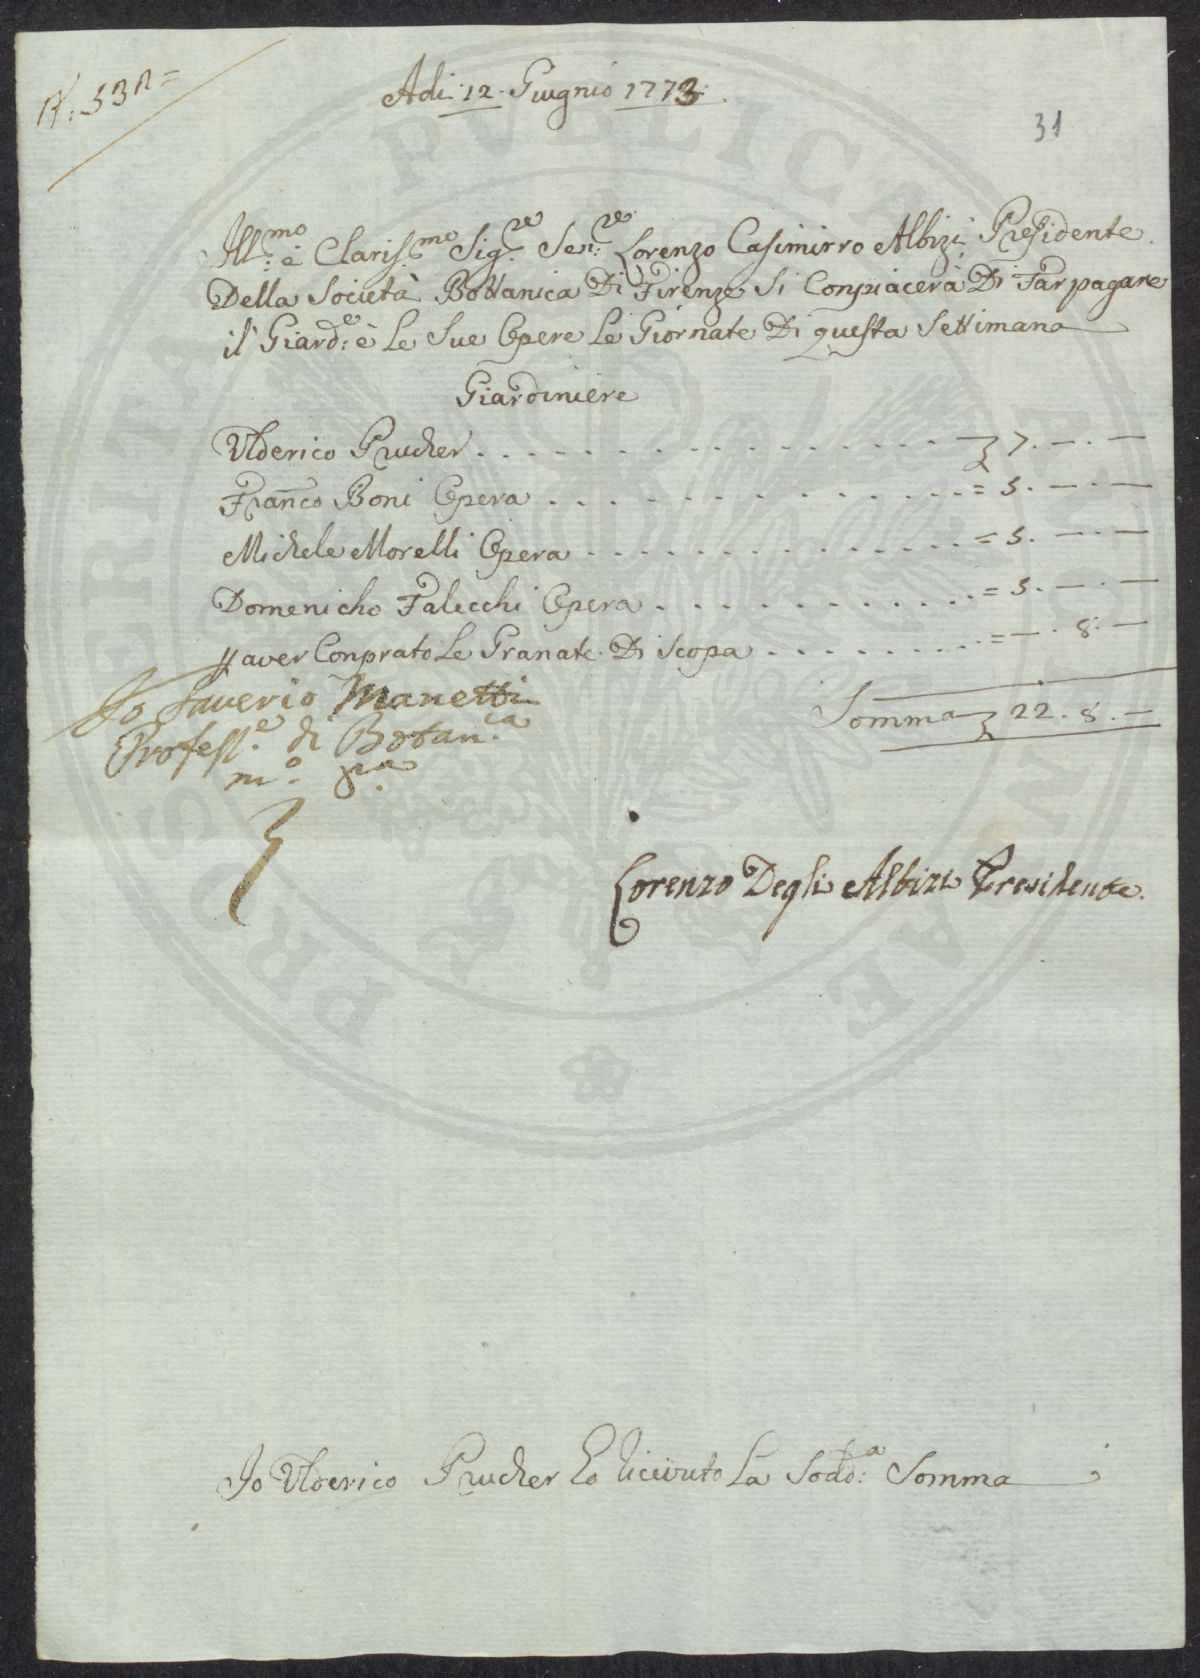 N: 532=
Adi: 12. Giugnio 1773.
31
Ill:mo è Clarismo Sig.re Sen:re Lorenzo Casimirro Albizi Presidente
Della Società Bottanica Di Firenze Si Conpiacerà Di Far pagare
il Giard:e è Le Sue Opere Le Giornate Di questa Settimana
Giardiniere
Ulderico Prucher . . . . . . . . . . . . . . 7. — . —
Franco Boni Opera . . . . . . . . . . . . = 5. — . —
Michele Morelli Opera . . . . . . . . . . . = 5. — . —
Domenicho Falecchi Opera . . . . . . . . . = 5. — . —
aver Conprato Le Granate Di Scopa . . . . . . . . = — . 8. —
Somma 22. 8. —
Io Saverio Manetti
Profess.e di Botan.ca
m.o p.a
Lorenzo Degli Albizi Presidente.
Io Ulderico Prucher ho Riceuto La Sodd:a Somma
PRSPERITATI PVBLICAE AVGENDAE